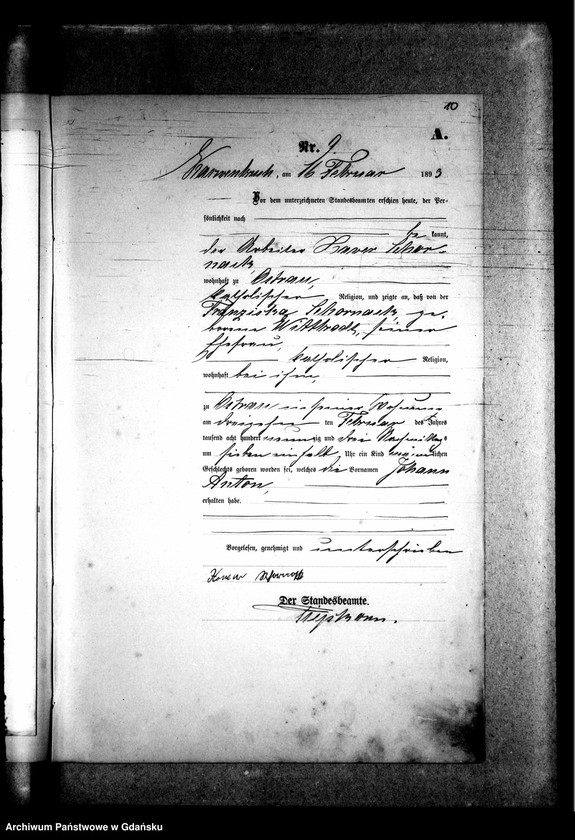 10
A.
Nr. 9
Karwenbruch, am 16 Februar 1893
Vor dem unterzeichneten Standesbeamten erschien heute, der Per-
sönlichkeit nach
be kannt,
der Arbeiter Xaver Schor-
nack
wohnhaft zu Ostrau,
katholischer Religion, und zeigte an, daß von der
Franziska Schornack, ge-
borene Witthrodt, seiner
Ehefrau,
katholischer Religion,
wohnhaft bei ihm,
zu Ostrau in seiner Wohnung
am dreizehnten Februar des Jahres
tausend acht hundert neunzig und drei Nachmittags
um sieben einhalb Uhr ein Kind männlichen
Geschlechts geboren worden sei, welches die Vornamen Johann
Anton,
erhalten habe.
Vorgelesen, genehmigt und unterschrieben
Der Standesbeamte.
Archiwum Państwowe w Gdańsku